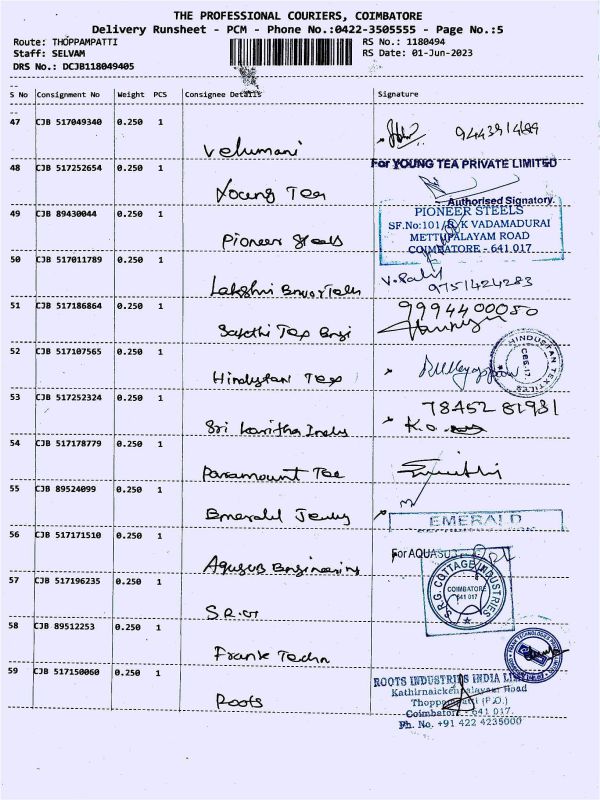 THE PROFESSIONAL COURIERS, COIMBATORE
Delivery Runsheet - PCM - Phone No.:0422-3505555 - Page No.:5
Route: THOPPAMPATTI RS No.: 1180494
Staff: SELVAM RS Date: 01-Jun-2023
DRS No.: DCJB118049405
S No Consignment No Weight PCS Consignee Details Signature
47 CJB 517049340 0.250 1
Velumani
48 CJB 517252654 0.250 1 For YOUNG TEA PRIVATE LIMITED
Young Tea
Authorised Signatory.
49 CJB 89430044 0.250 1 PIONEER STEELS
SF.No:101/ K VADAMADURAI
METTUPALAYAM ROAD
Pioneer Steels COIMBATORE - 641 017
50 CJB 517011789 0.250 1
Lakshmi 9751424283
51 CJB 517186864 0.250 1 9994400050
Sakthi Tex Engi
52 CJB 517107565 0.250 1 HINDUSTAN TEXTILES
CBE-17.
Hindustan Tex
53 CJB 517252324 0.250 1 78452 81981
Sri Kavitha Indus K.O.
54 CJB 517178779 0.250 1
Paramount Tee
55 CJB 89524099 0.250 1
Emerald Jewly EMERALD
56 CJB 517171510 0.250 1
For AQUASUB
Aquasub Engineering
57 CJB 517196235 0.250 1 S.R.G. COTTAGE INDUSTRIES
COIMBATORE
641 017
S.R.G
58 CJB 89512253 0.250 1
Frank Techn
59 CJB 517150060 0.250 1 ROOTS INDUSTRIES INDIA
Kathirnaickenpalayam Road
Roots Thoppampatti (P.O.)
Coimbatore - 641 017.
Ph. No. +91 422 4235000